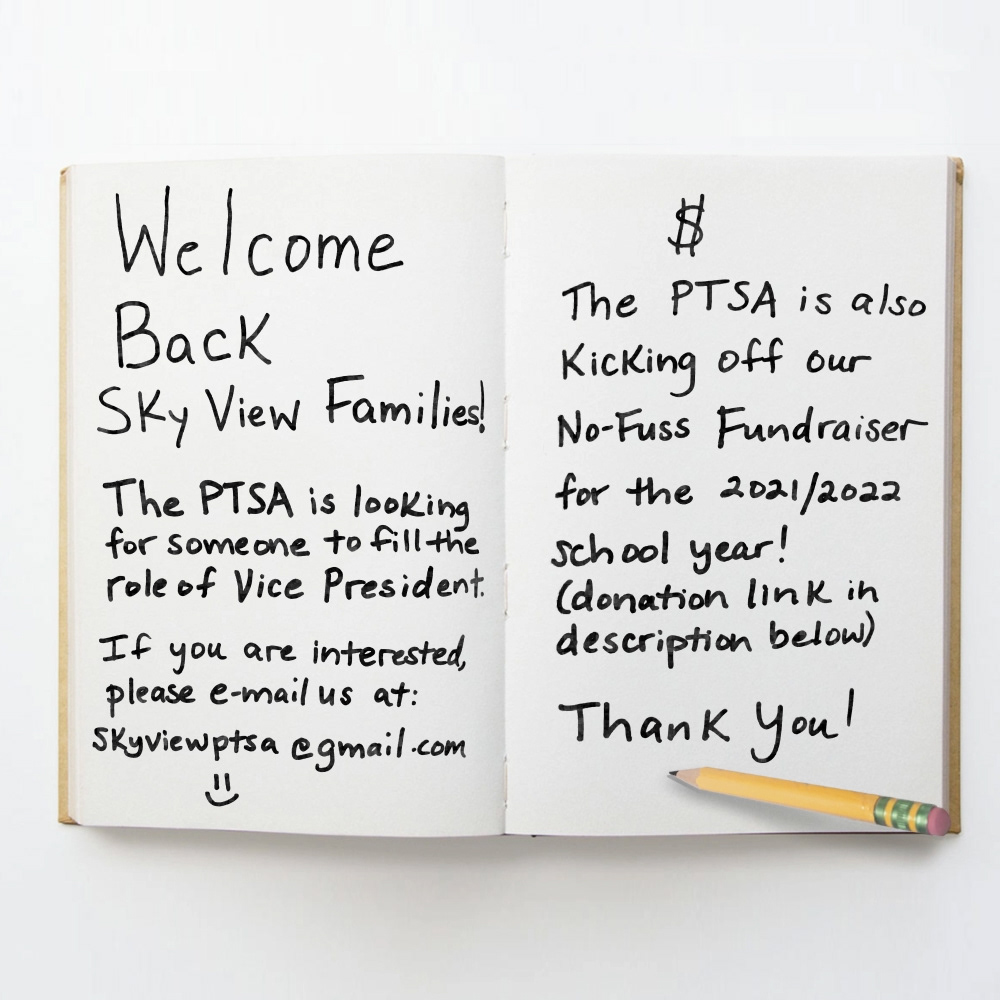 Welcome
Back
Sky View Families!
The PTSA is looking
for someone to fill the
role of Vice President.
If you are interested,
please e-mail us at:
skyviewptsa@gmail.com
$
The PTSA is also
Kicking off our
No-Fuss Fundraiser
for the 2021/2022
school year!
(donation link in
description below)
Thank You!